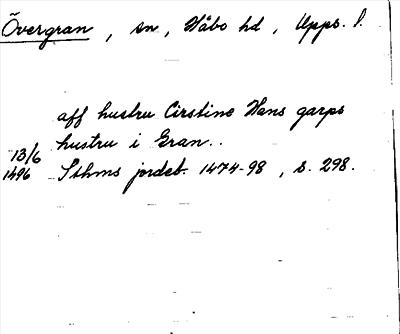 Övergran, sn, Håbo hd, Upps. l.
aff hustru Cirstine Hans garps
hustru i Gran..
13/6
1496 Sthms jordeb. 1474-98, s. 298.